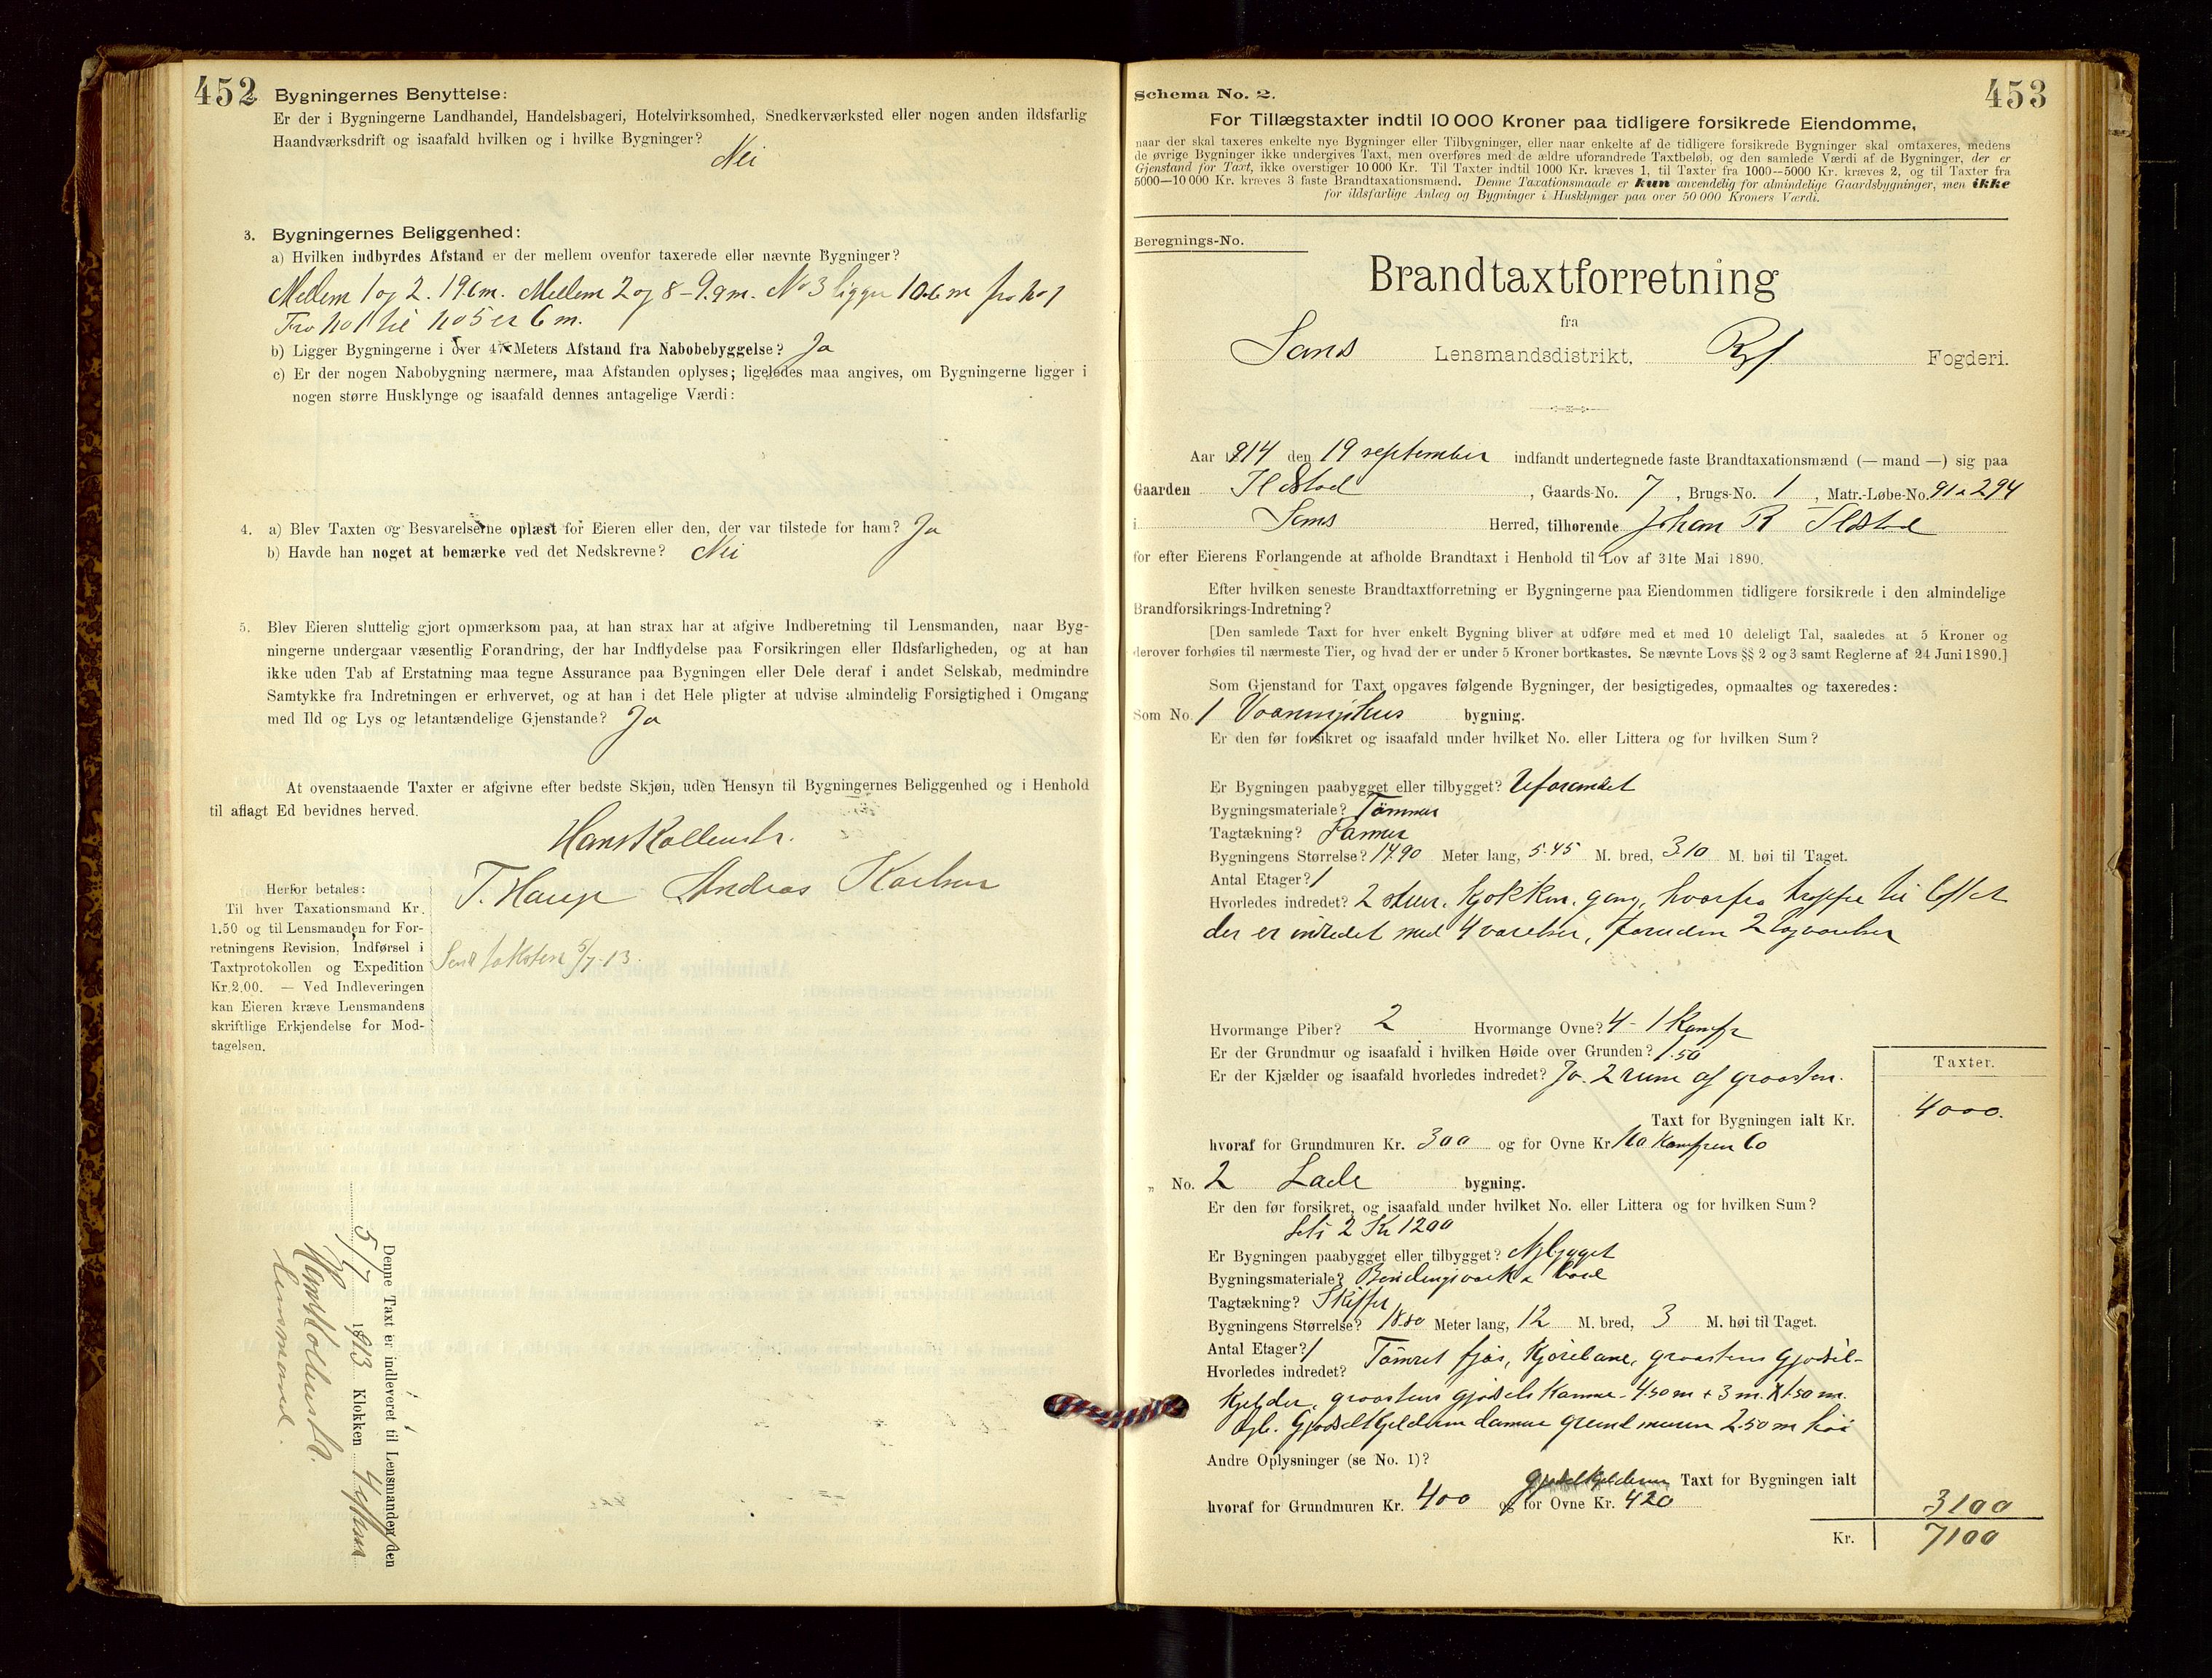 452
Bygningernes Benyttelse:
Er der i Bygningerne Landhandel, Handelsbageri, Hotelvirksomhed, Snedkerværksted eller nogen anden ildsfarlig
Haandværksdrift og isaafald hvilken og i hvilke Bygninger?
Nei
3. Bygningernes Beliggenhed:
a) Hvilken indbyrdes Afstand er der mellem ovenfor taxerede eller nævnte Bygninger?
Mellem 1 og 2. 19.6m. Mellem 2 og 8 - 9.9m. No 3 ligger 10.6 m fra No 1
Fra No 1 til No 5 er 6 m.
b) Ligger Bygningerne i over 47 Meters Afstand fra Nabobebyggelse? Ja
c) Er der nogen Nabobygning nærmere, maa Afstanden oplyses; ligeledes maa angives, om Bygningerne ligger i
nogen større Husklynge og isaafald dennes antagelige Værdi:
4. a) Blev Taxten og Besvarelserne oplæst for Eieren eller den, der var tilstede for ham? Ja
b) Havde han noget at bemærke ved det Nedskrevne? Nei
5. Blev Eieren sluttelig gjort opmærksom paa, at han strax har at afgive Indberetning til Lensmanden, naar Byg-
ningerne undergaar væsentlig Forandring, der har Indflydelse paa Forsikringen eller Ildsfarligheden, og at han
ikke uden Tab af Erstatning maa tegne Assurance paa Bygningen eller Dele deraf i andet Selskab, medmindre
Samtykke fra Indretningen er erhvervet, og at han i det Hele pligter at udvise almindelig Forsigtighed i Omgang
med Ild og Lys og letantændelige Gjenstande? Ja
At ovenstaaende Taxter er afgivne efter bedste Skjøn, uden Hensyn til Bygningernes Beliggenhed og i Henhold
til aflagt Ed bevidnes herved.
Andreas Karlsen
Herfor betales:
Til hver Taxationsmand Kr.
1.50 og til Lensmanden for For-
retningens Revision, Indførsel i
Taxtprotokollen og Expedition
Kr. 2.00. — Ved Indleveringen
kan Eieren kræve Lensmandens
skriftlige Erkjendelse for Mod-
tagelsen.
5/7-13.
Denne Taxt er indleveret til Lensmanden den
5/7 1913 Klokken 4
lensmand.
453
Schema No. 2.
For Tillægstaxter indtil 10 000 Kroner paa tidligere forsikrede Eiendomme,
naar der skal taxeres enkelte nye Bygninger eller Tilbygninger, eller naar enkelte af de tidligere forsikrede Bygninger skal omtaxeres, medens
de øvrige Bygninger ikke undergives Taxt, men overføres med de ældre uforandrede Taxtbeløb, og den samlede Værdi af de Bygninger, der er
Gjenstand for Taxt, ikke overstiger 10 000 Kr. Til Taxter indtil 1000 Kr. kræves 1, til Taxter fra 1000—5000 Kr. kræves 2, og til Taxter fra
5000—10 000 Kr. kræves 3 faste Brandtaxationsmænd. Denne Taxationsmaade er kun anvendelig for almindelige Gaardsbygninger, men ikke
for ildsfarlige Anlæg og Bygninger i Husklynger paa over 50 000 Kroners Værdi.
Beregnings-No.
Brandtaxtforretning
fra
Sands Lensmandsdistrikt, Ryf Fogderi.
Aar 1914 den 19 september indfandt undertegnede faste Brandtaxationsmænd (— mand —) sig paa
Gaarden Ildstad, Gaards-No. 7, Brugs-No. 1, Matr.-Løbe-No. 91a 294
i Sands Herred, tilhørende Johan R Ildstad
for efter Eierens Forlangende at afholde Brandtaxt i Henhold til Lov af 31te Mai 1890.
Efter hvilken seneste Brandtaxtforretning er Bygningerne paa Eiendommen tidligere forsikrede i den almindelige
Brandforsikrings-Indretning?
[Den samlede Taxt for hver enkelt Bygning bliver at udføre med et med 10 deleligt Tal, saaledes at 5 Kroner og
derover forhøies til nærmeste Tier, og hvad der er under 5 Kroner bortkastes. Se nævnte Lovs §§ 2 og 3 samt Reglerne af 24 Juni 1890.]
Som Gjenstand for Taxt opgaves følgende Bygninger, der besigtigedes, opmaaltes og taxeredes:
Som No. 1 Vaaningshus bygning.
Er den før forsikret og isaafald under hvilket No. eller Littera og for hvilken Sum?
Er Bygningen paabygget eller tilbygget? Uforandet
Bygningsmateriale? Tømmer
Tagtækning?
Bygningens Størrelse? 14.90 Meter lang, 5.45 M. bred, 3.10 M. høi til Taget.
Antal Etager? 1
Hvorledes indredet? 2 stuer, kjøkken, gang, hvorfra trappe til loftet
der er indredet med 4 værelser, foruden 2
Hvormange Piber? 2 Hvormange Ovne? 4 - 1 Komfr
Er der Grundmur og isaafald i hvilken Høide over Grunden? 1.50
Er der Kjælder og isaafald hvorledes indredet? Ja. 2 rum af graasten.
Taxter.
Taxt for Bygningen ialt Kr. 4000.
hvoraf for Grundmuren Kr. 300 og for Ovne Kr. 160 Komfyren 60
„ No. 2 Lade bygning.
Er den før forsikret, og isaafald under hvilket No. eller Littera og for hvilken Sum?
2 Kr 1200
Er Bygningen paabygget eller tilbygget? Nybygget
Bygningsmateriale? Bindingsverk & bord
Tagtækning? Skiffer
Bygningens Størrelse? 18.80 Meter lang, 12 M. bred, 3 M. høi til Taget.
Antal Etager? 1
Hvorledes indredet? Tømret fjøs, Kjørebane, graastens Gjødsel-
kjelder, graastens gjødselskamme - 4.50 m + 3 m. X 1.50 m.
Gjødselkjelderen danner grundmuren 2.50 m høi
Andre Oplysninger (se No. 1)?
Gjødselkjelderen Taxt for Bygningen ialt
hvoraf for Grundmuren Kr. 400 og for Ovne Kr. 420 3100
Kr. 7100